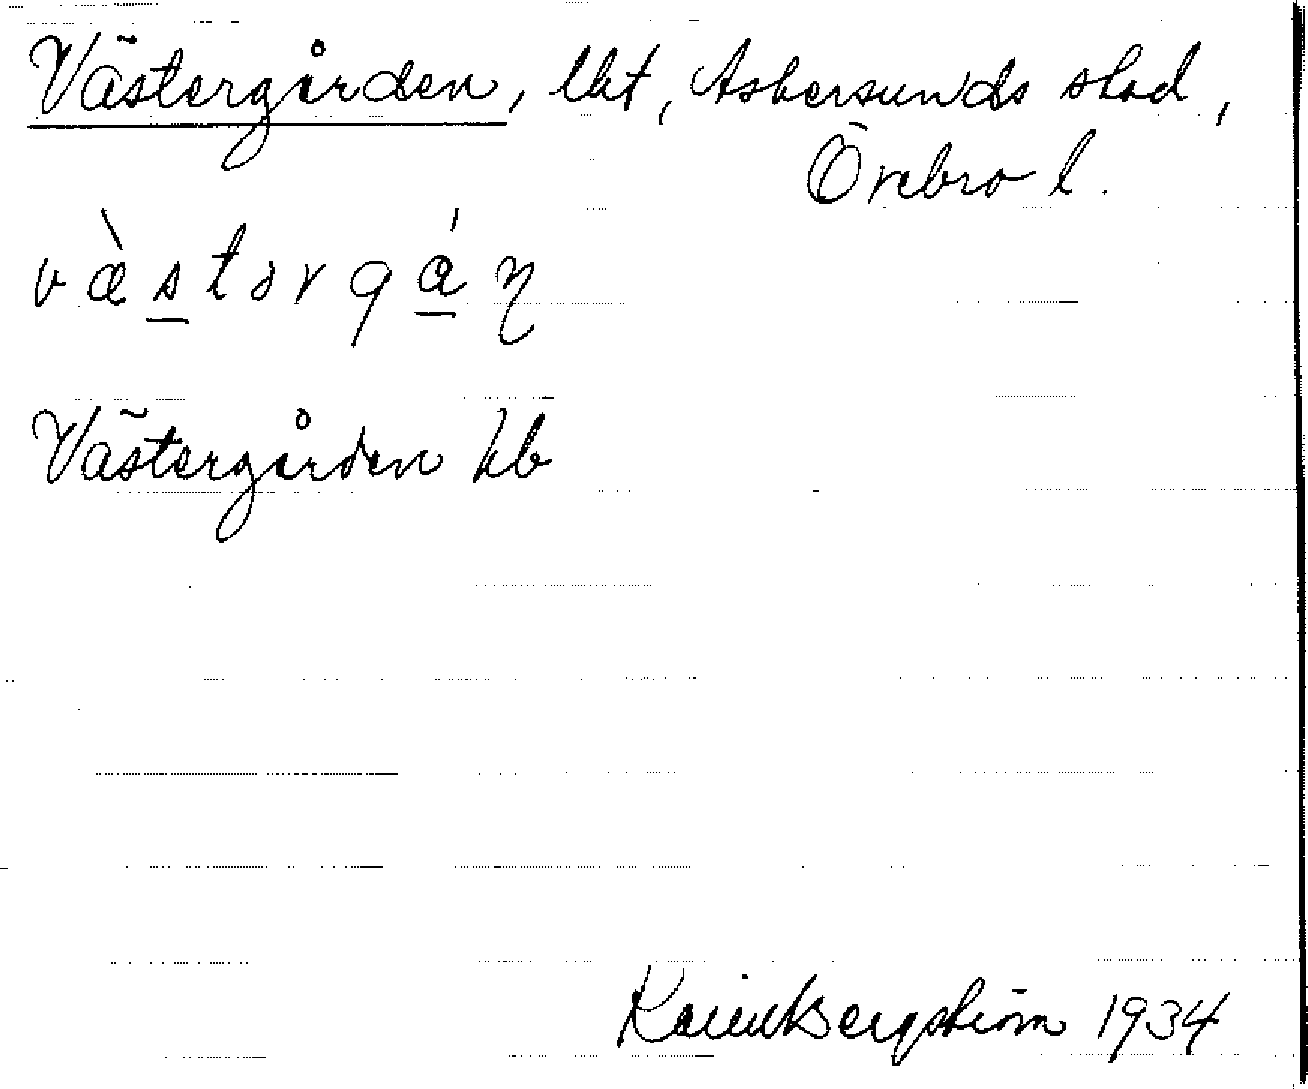 Västergården, lht, Askersunds stad,
Örebro l.
væ̀stərgán
Västergården kb
Karin Bergström 1934